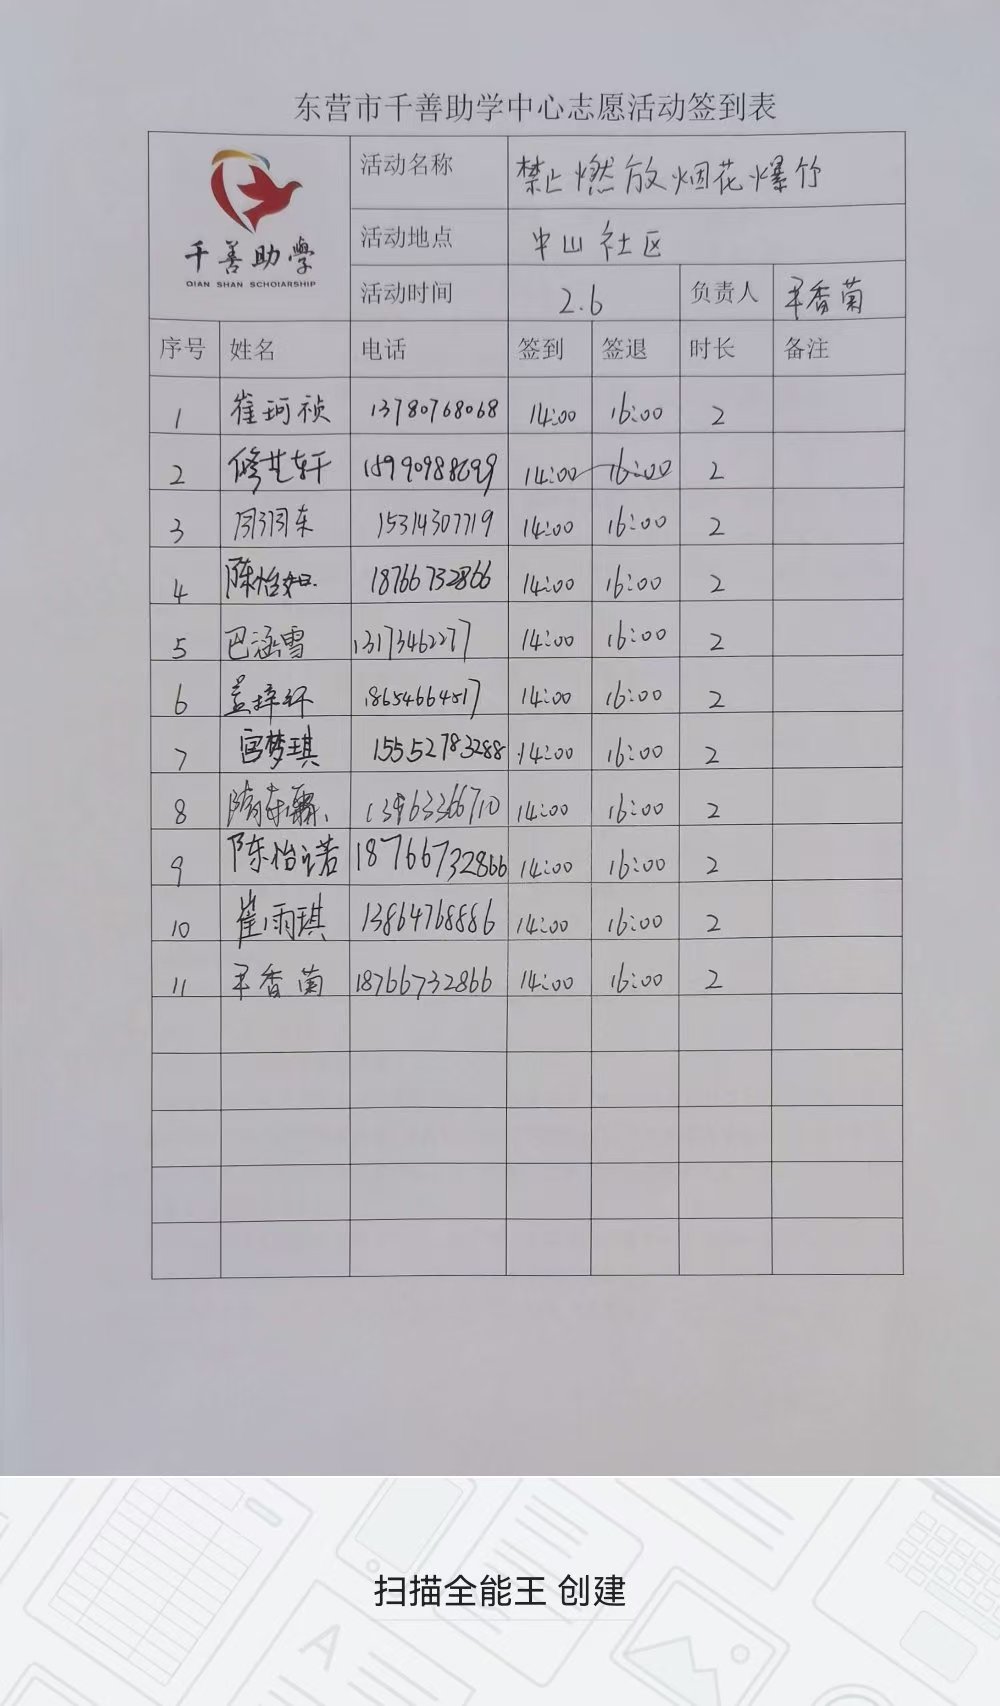 东营市千善助学中心志愿活动签到表
千善助學
QIAN SHAN SCHOIARSHIP
活动名称 禁止燃放烟花爆竹
活动地点 中山社区
活动时间 2.6 负责人 香菊
序号 姓名 电话 签到 签退 时长 备注
1 崔珂祯 13780768068 14:00 16:00 2
2 修艺轩 14:00 16:00 2
3 15314307719 14:00 16:00 2
4 陈怡如 18766732866 14:00 16:00 2
5 巴涵雪 13173462277 14:00 16:00 2
6 盖梓 18654664517 14:00 16:00 2
7 宫梦琪 15552783288 14:00 16:00 2
8 隋东霖 13963366710 14:00 16:00 2
9 陈怡诺 18766732866 14:00 16:00 2
10 崔雨琪 13864768886 14:00 16:00 2
11 香菊 18766732866 14:00 16:00 2
扫描全能王 创建